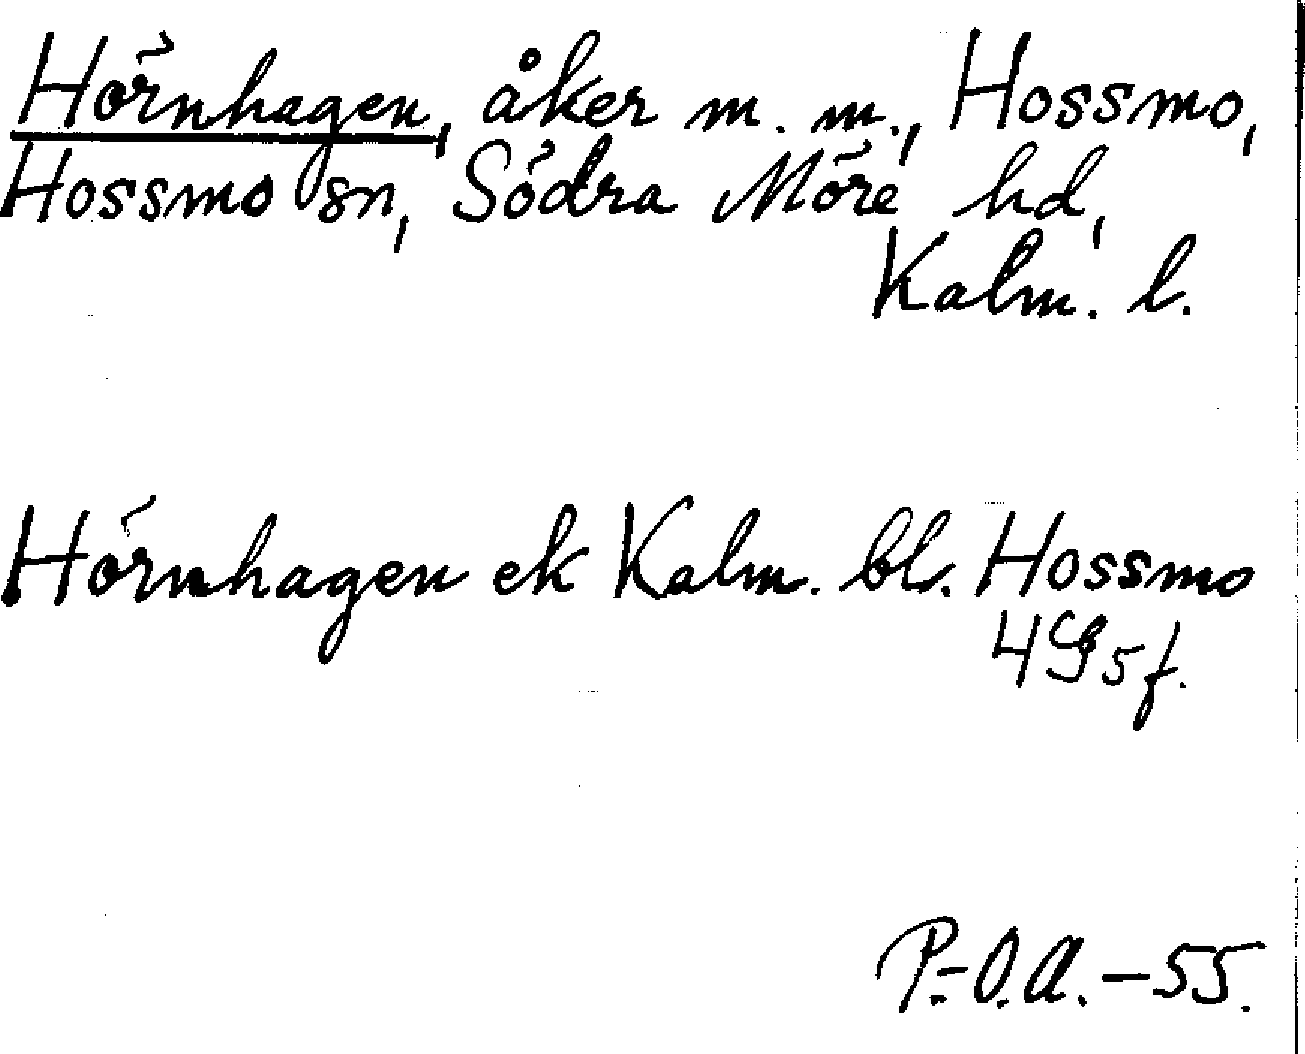 Hörnhagen, åker m. m., Hossmo,
Hossmo sn, Södra Möre hd,
Kalm. l.
Hörnhagen ek Kalm. bl. Hossmo
4G5f.
P.-O.A.-55.